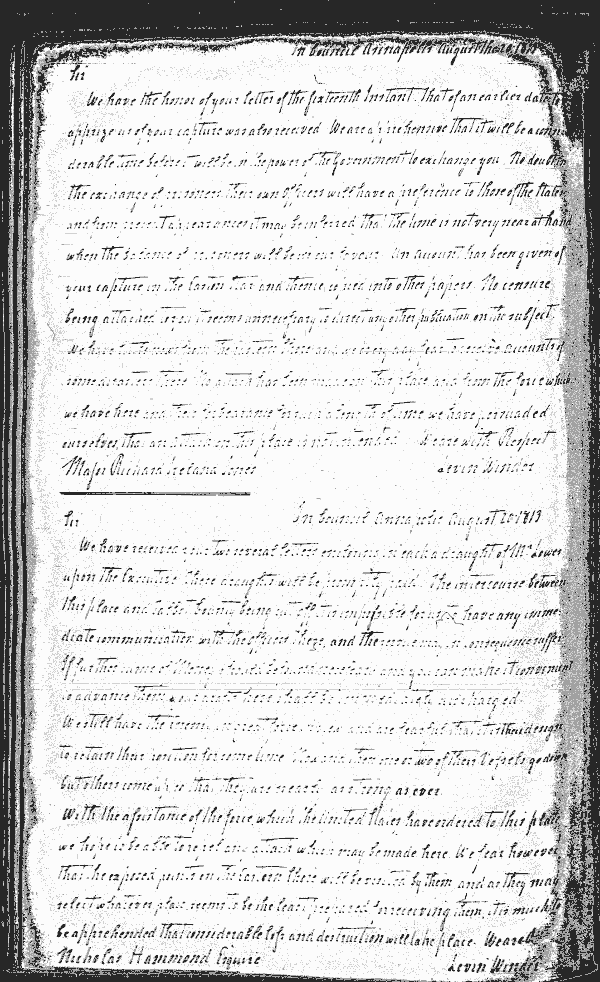 In Council Annapolis August the 20 1813
Sir
We have the honor of your letter of the sixteenth Instant. That of an earlier date to
apprize us of your capture was also received. We are apprehensive that it will be a consi
derable time before it will be in the power of the Government to exchange you. No doubt in
the exchange of prisoners their own Officers will have a preference to those of the States
and from present appearances it may be inferred that the time is not very near at hand
when the balance of prisoners will be in our favour. An account has been given of
your capture in the Easton Star and thence copied into other papers. No censure
being attached to you it seems unnecessary to direct any other publication on the subject.
We have little news from the Eastern Shore and we every day fear to receive accounts of
some disasters there. No attack has been made on this place and from the force which
we have here and their forbearance for such a length of time we have persuaded
ourselves, that an attack on this place is not intended. We are with Respect
Major Richard Jones Levin Winder
Sir In Council Annapolis August 20 1813
We have received your two several letters enclosing in each a draught of Mr Lower
upon the Executive. These draughts will be promptly paid. The intercourse between
this place and being cut off it is impossible for us to have any imme-
diate communication with the officers there, and the may in consequence suffer
If further sums of Money should be necessary and you can make it convenient
to advance them your drafts here shall be immediately discharged.
We still have the enemy in great force in view and are fearful that it is their design
to retain their position for some time. Now and then one or two of their Vessels go down
but others come up so that they are nearly as strong as ever.
With the assistance of the force, which the United States have ordered to this place
we hope to be able to repel any attack which may be made here. We fear however
that the exposed points on the Eastern Shore will be visited by them and as they may
select whatever place seems to be the least prepared for receiving them, it is much to
be apprehended that considerable loss and destruction will take place. We are &c
Nicholas Hammond Esquire Levin Winder